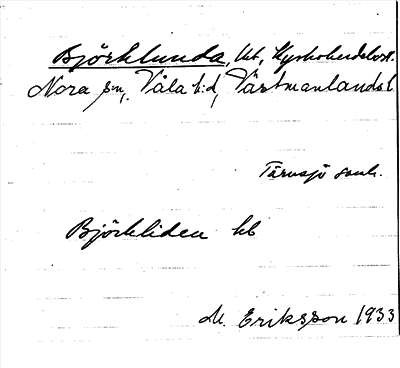 Björklunda, lht, Kyrkoherdebost.
Nora sn, Våla hd, Västmanlands l
Tärnsjö samh.
Björkliden hl
M. Eriksson 1933